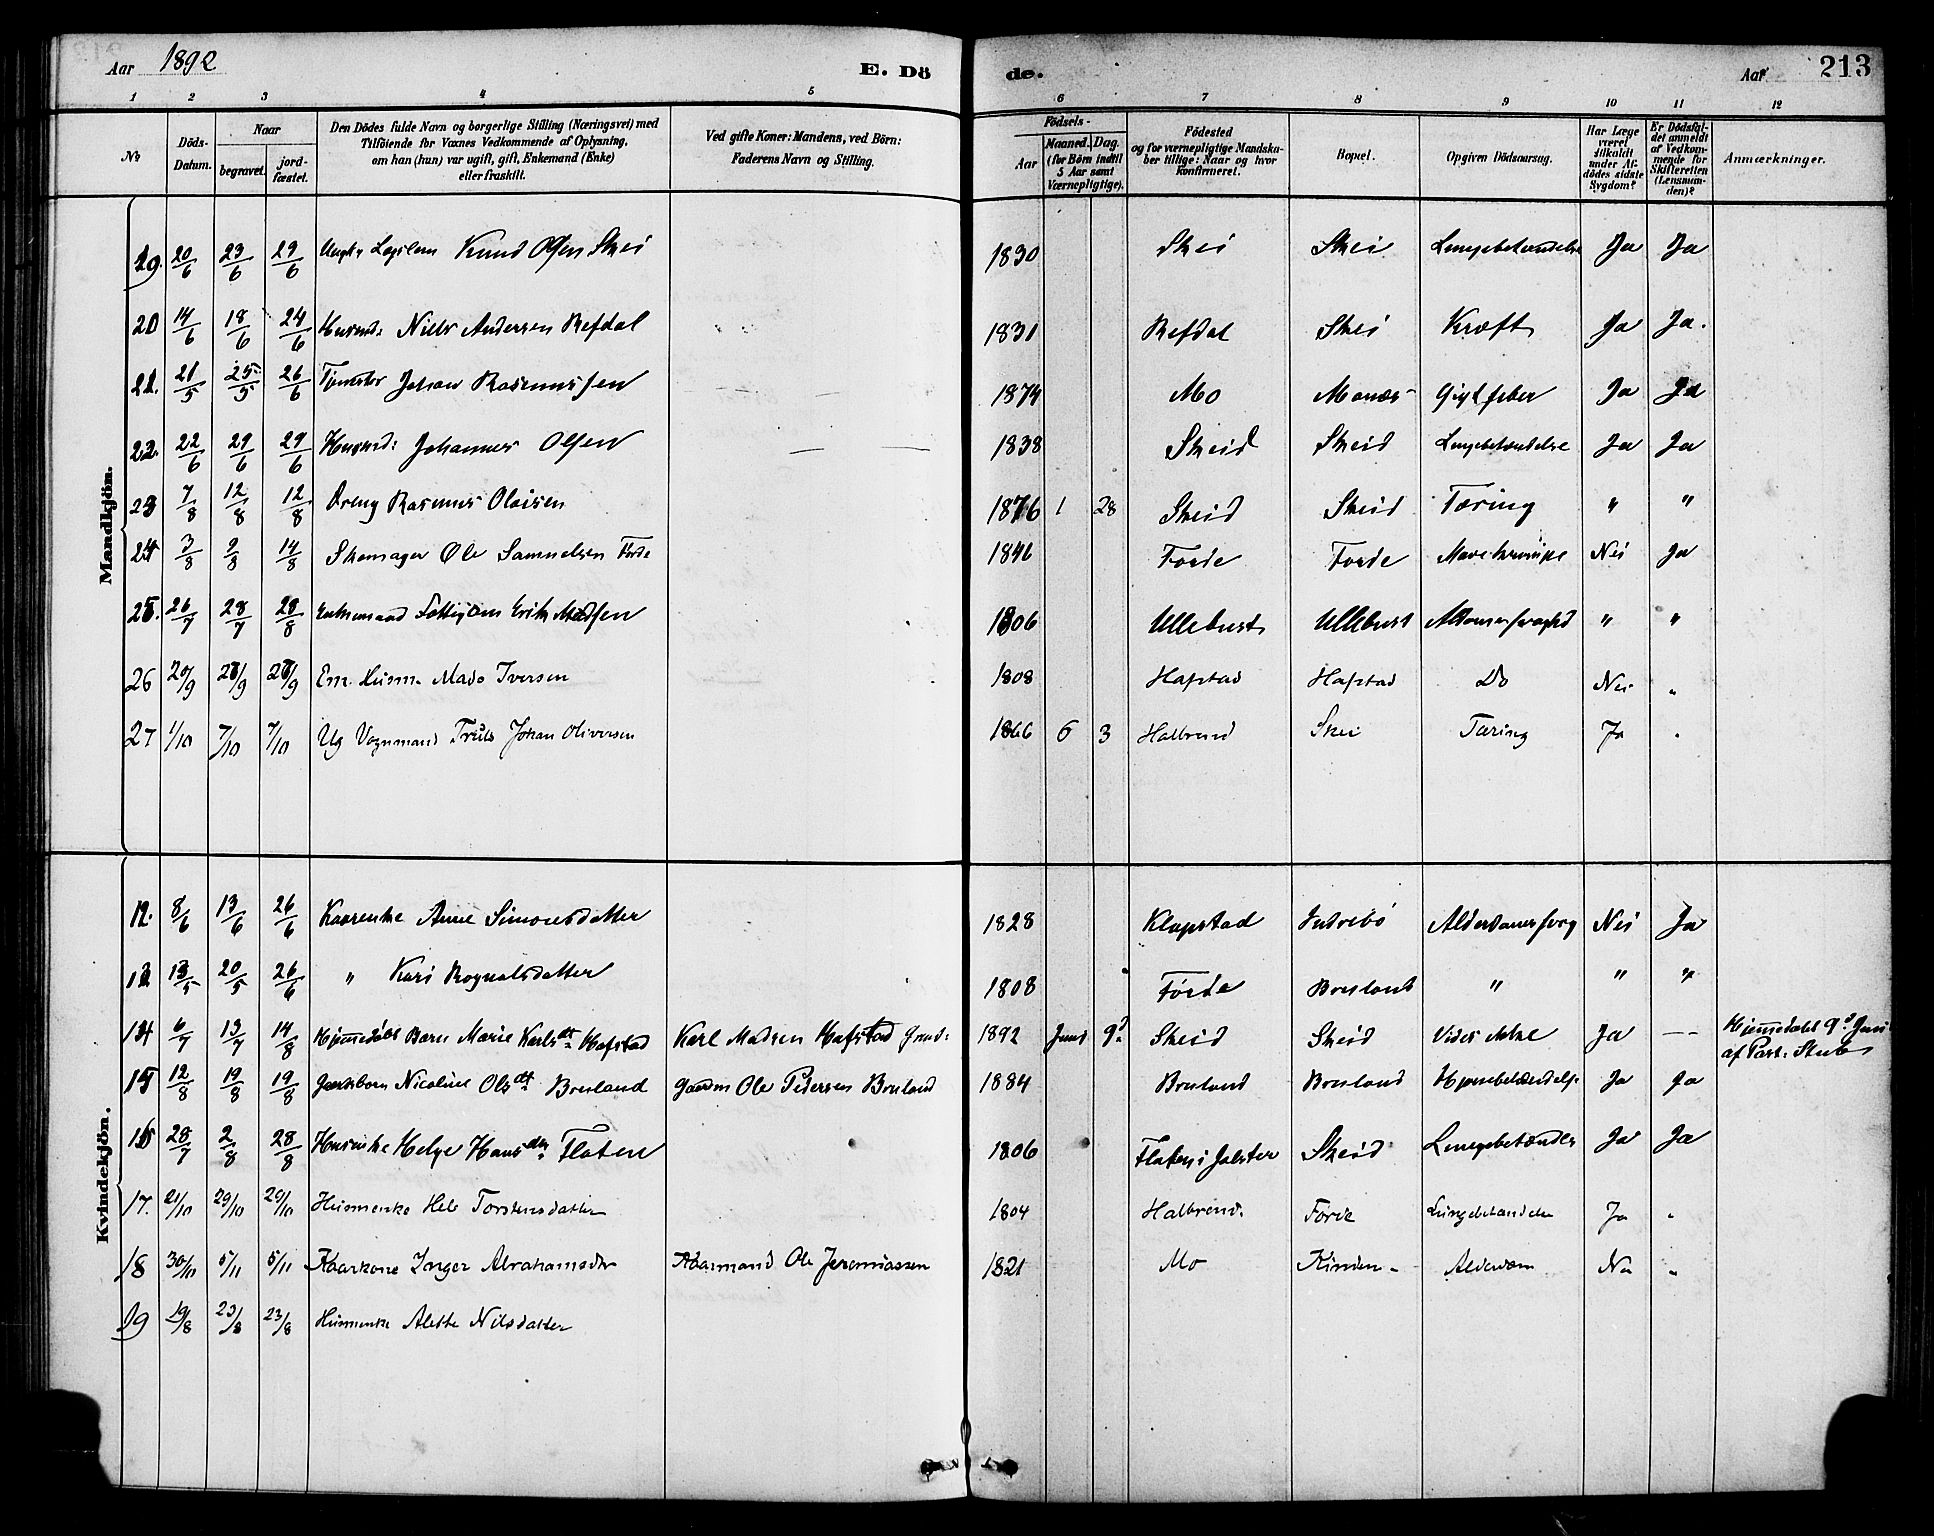 Aar 1892 E. Dö de. Aar 213
1 2 3 4 5 6 7 8 9 10 11 12
No Döds-Datum. Naar begravet. jord-fæstet. Den Dödes fulde Navn og borgerlige Stilling (Næringsvei) med Tilföiende for Voxnes Vedkommende af Oplysning, om han (hun) var ugift, gift, Enkemand (Enke) eller fraskilt. Ved gifte Koner: Mandens, ved Börn: Faderens Navn og Stilling. Födsels- Aar Maaned. Dag. (for Börn indtil 5 Aar samt Værnepligtige). Födested og for værnepligtige Mandskaber tillige: Naar og hvor konfirmeret. Bopæl. Opgiven Dödsaarsag. Har Læge været tilkaldt under Afdödes sidste Sygdom? Er Dödsfaldet anmeldt af Vedkommende for Skifteretten (Lensmanden)? Anmærkninger.
Mandkjön.
19. 20/6 23/6 29/6 Knud Olsen Skei 1830 Skei Skei Lungebetændelse Ja Ja
20 14/6 18/6 24/6 Husmd: Nils Andersen Refdal 1831 Refdal Skei Kræft Ja Ja.
21. 21/5 25/5 26/6 Johan Rasmussen 1874 Mo Monæs Gigtfeber Ja Ja
22. 22/6 29/6 29/6 Husmd: Johannes Olsen — — 1838 Skeid Skeid Lungebetændelse Ja Ja
23 7/8 12/8 12/8 Dreng Rasmus Olaisen 1876 1 28 Skeid Skeid Tæring " "
24 3/8 9/8 14/8 Skomager Ole Samuelsen Förde 1846 Förde Förde Mavekrampe Nei Ja
25. 26/7 28/7 28/8 Enkemand Fattiglem Erik Madsen 1806 Ullebust Ullebust " "
26 20/9 Em. Husm. Mads Iversen 1808 Hafstad Hafstad Do Nei "
27 1/10 7/10 7/10 Ug Vognmand Truls Johan Oliversen 1866 6 3 Halbrend Skei Tæring Ja "
Kvindekjön.
12. 8/6 13/6 26/6 Kaarenke Anne Simonsdatter 1828 Klopstad Indrebö Nei Ja
13 13/5 20/5 26/6 " Kari Rognalsdatter 1808 Förde Bruland " " "
14 6/7 13/7 14/8 Hjemmedöbt Barn Marie Karlsdt Hafstad Karl Madsen Hafstad 1892 Juni 9d Skeid Skeid Ja — Hjemmedöbt 9d Juni
af Past: Stub
15 12/8 19/8 19/8 Nicoline Olsdt Bruland Gaardm Ole Pedersen Bruland 1884 Bruland Bruland Hjernebetændelse Ja Ja
16 28/7 2/8 28/8 Husenke Helge Hansdtr Flaten 1806 Flaten i Jölster Skeid Lungebetændelse Ja Ja
17. 21/10 29/10 29/10 Husmenke Hele Torstensdatter 1804 Halbrend. Förde Lungebetændelse Ja "
18 30/10 5/11 5/11 Kaarkone Inger Abrahamsdtr Kaarmand Ole Jeremiassen 1821 Mo Kinden Alderdom Nei "
19 19/8 23/8 23/8 Husmenke Alette Nilsdatter